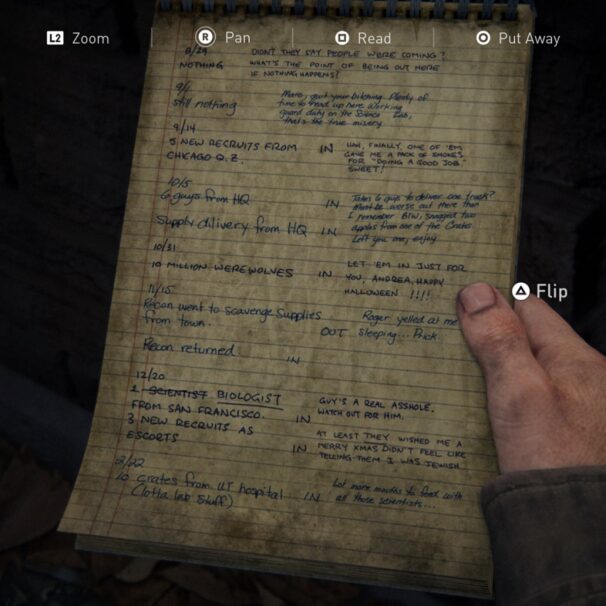 L2 Zoom
R Pan
Read
Put Away
8/29
NOTHING
DIDN'T THEY SAY PEOPLE WERE COMING?
WHAT'S THE POINT OF BEING OUT HERE
IF NOTHING HAPPENS!
9/1
still nothing
Marc, quit your bitching. Plenty of
time to read up here. Working
guard duty on the Science Lab,
that's the true misery
9/14
5 NEW RECRUITS FROM
CHICAGO Q.Z.
IN
HAH, FINALLY, ONE OF 'EM
GAVE ME A PACK OF SMOKES
FOR "DOING A GOOD JOB."
SWEET!
10/5
6 guys from HQ
IN
Takes 6 guys to deliver one truck?
Must be worse out there than
I remember BTW, snagged two
apples from one of the Crates
Left you one, enjoy
Supply dilivery from HQ
IN
10/31
10 MILLION WEREWOLVES
IN
LET 'EM IN JUST FOR
YOU, ANDREA, HAPPY
HALLOWEEN !!!!
11/15
Recon went to scavenge supplies
from town.
OUT
Roger yelled at me
sleeping... Prick
Recon returned
IN
12/20
1 SCIENTIST BIOLOGIST
FROM SAN FRANCISCO.
IN
GUY'S A REAL ASSHOLE.
WATCH OUT FOR HIM.
3 NEW RECRUITS AS
ESCORTS
IN
AT LEAST THEY WISHED ME A
MERRY XMAS DIDN'T FEEL LIKE
TELLING THEM I WAS JEWISH
2/22
10 crates from UT hospital
(lotta lab stuff)
IN
Lot more mouths to feed with
all those scientists...
Flip